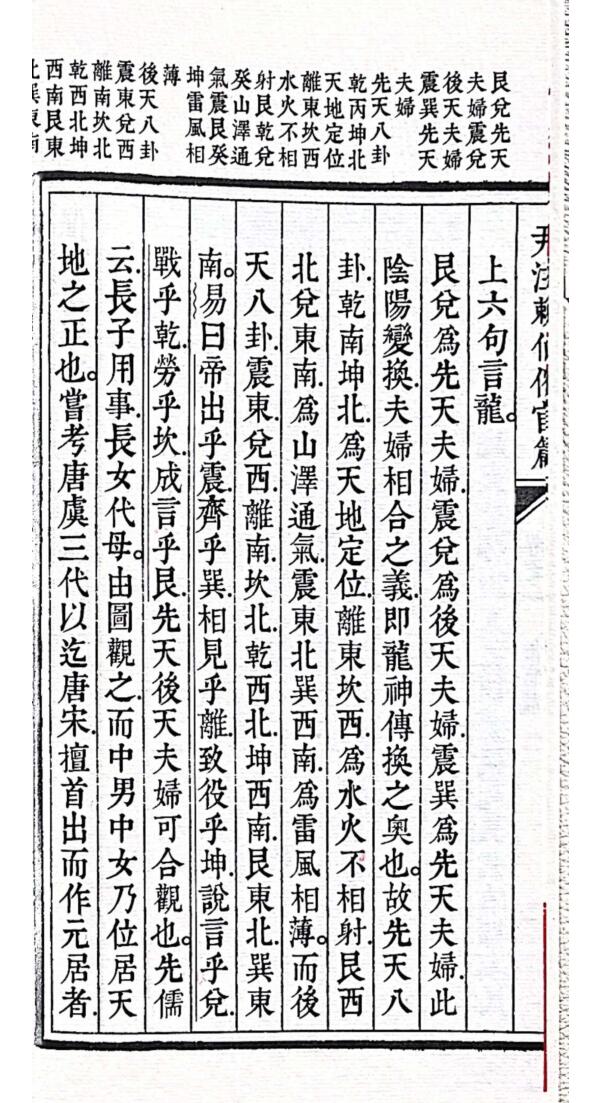 艮兌先天
夫婦震兌
後天夫婦
震巽先天
夫婦
先天八卦
乾丙坤北
天地定位
離東坎西
水火不相
射艮乾兌
癸山澤通
氣震艮癸
坤雷風相
薄
後天八卦
震東兌西
離南坎北
乾西北坤
西南艮東
北巽東南
上六句言龍。
艮兌爲先天夫婦.震兌爲後天夫婦.震巽爲先天夫婦.此
陰陽變換.夫婦相合之義.即龍神傳換之奧也。故先天八
卦.乾南坤北.爲天地定位.離東坎西.爲水火不相射.艮西
北兌東南.爲山澤通氣.震東北巽西南.爲雷風相薄。而後
天八卦.震東.兌西.離南.坎北.乾西北.坤西南.艮東北.巽東
南。易曰帝出乎震.齊乎巽.相見乎離.致役乎坤.說言乎兌.
戰乎乾.勞乎坎.成言乎艮.先天後天夫婦可合觀也。先儒
云.長子用事.長女代母。由圖觀之.而中男中女乃位居天
地之正也。嘗考唐虞三代以迄唐宋.擅首出而作元居者.